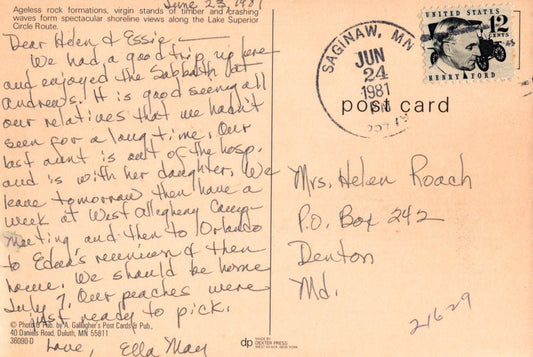 June 23, 1981
Ageless rock formations, virgin stands of timber and crashing
waves form spectacular shoreline views along the Lake Superior
Circle Route.
Dear Helen & Essie —
We had a good trip up here
and enjoyed the Sabbath at
Andrews. It is good seeing all
our relatives that we hadn't
seen for a long time. Our
last aunt is out of the hosp.
and is with her daughter. We
leave tomorrow then have a
week at West Allegheny Camp
Meeting, and then to Orlando
to Edna's reunion & then
home. We should be home
July 7. Our peaches were
just ready to pick.
Love, Ella May
© Photo & Pub. by A. Gallagher's Post Cards & Pub.,
40 Daniels Road, Duluth, MN 55811
36090-D
dp
MADE BY
DEXTER PRESS
WEST NYACK, NEW YORK
SAGINAW, MN
JUN
24
1981
PM
UNITED STATES
12
CENTS
HENRY FORD
post card
Mrs. Helen Roach
P.O. Box 242
Denton
Md.
21629